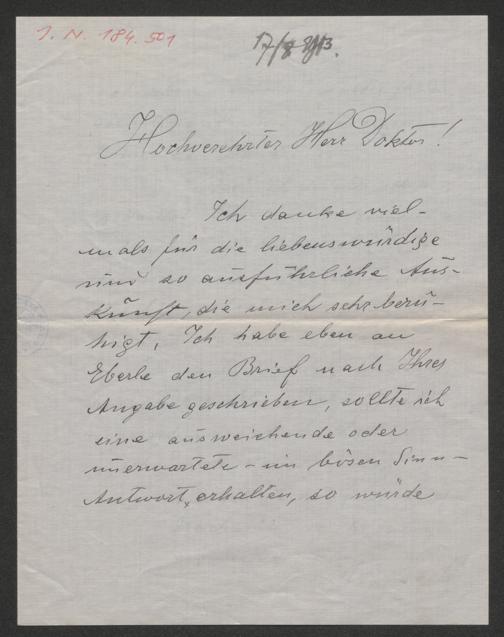 I. N. 184.501
17/8 13.
Hochverehrter Herr Doktor!
Ich danke viel-
mals für die liebenswürdige
und so ausführliche Aus-
kunft, die mich sehr beru-
higt. Ich habe eben an
Eberle den Brief nach Ihrer
Angabe geschrieben, sollte ich
eine ausweichende oder
unerwartete - im bösen Sinn -
Antwort, erhalten, so würde